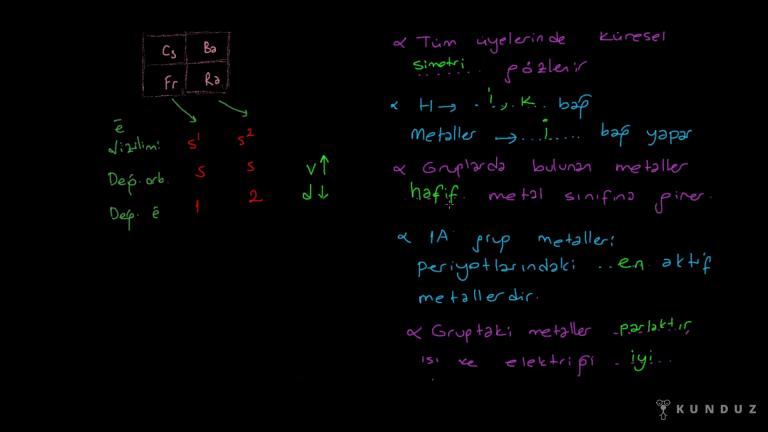 Cs Ba
Fr Ra
ē
dizilimi s¹ s²
Değ. orb. s s
Değ. ē 1 2
V↑
d↓
α Tüm üyelerinde küresel
simetri gözlenir
α H → i, k bağ
Metaller → i bağ yapar
α Gruplarda bulunan metaller
hafif metal sınıfına girer.
α IA grup metalleri
periyotlarındaki ..en aktif
metallerdir.
α Gruptaki metaller parlaktır,
ısı ve elektriği iyi..
KUNDUZ